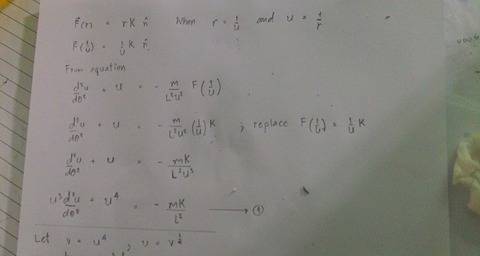 F(r) = r K n̂ When r = 1/u and u = 1/r
F(1/u) = 1/u K n̂
From equation
d²u/dθ² + u = - m/L²u² F(1/u)
d²u/dθ² + u = - m/L²u² (1/u) K ; replace F(1/u) = 1/u K
d²u/dθ² + u = - mK/L²u³
u³ d²u/dθ² + u⁴ = - mK/L² ⟶ ①
Let v = u⁴ , u = v^1/4